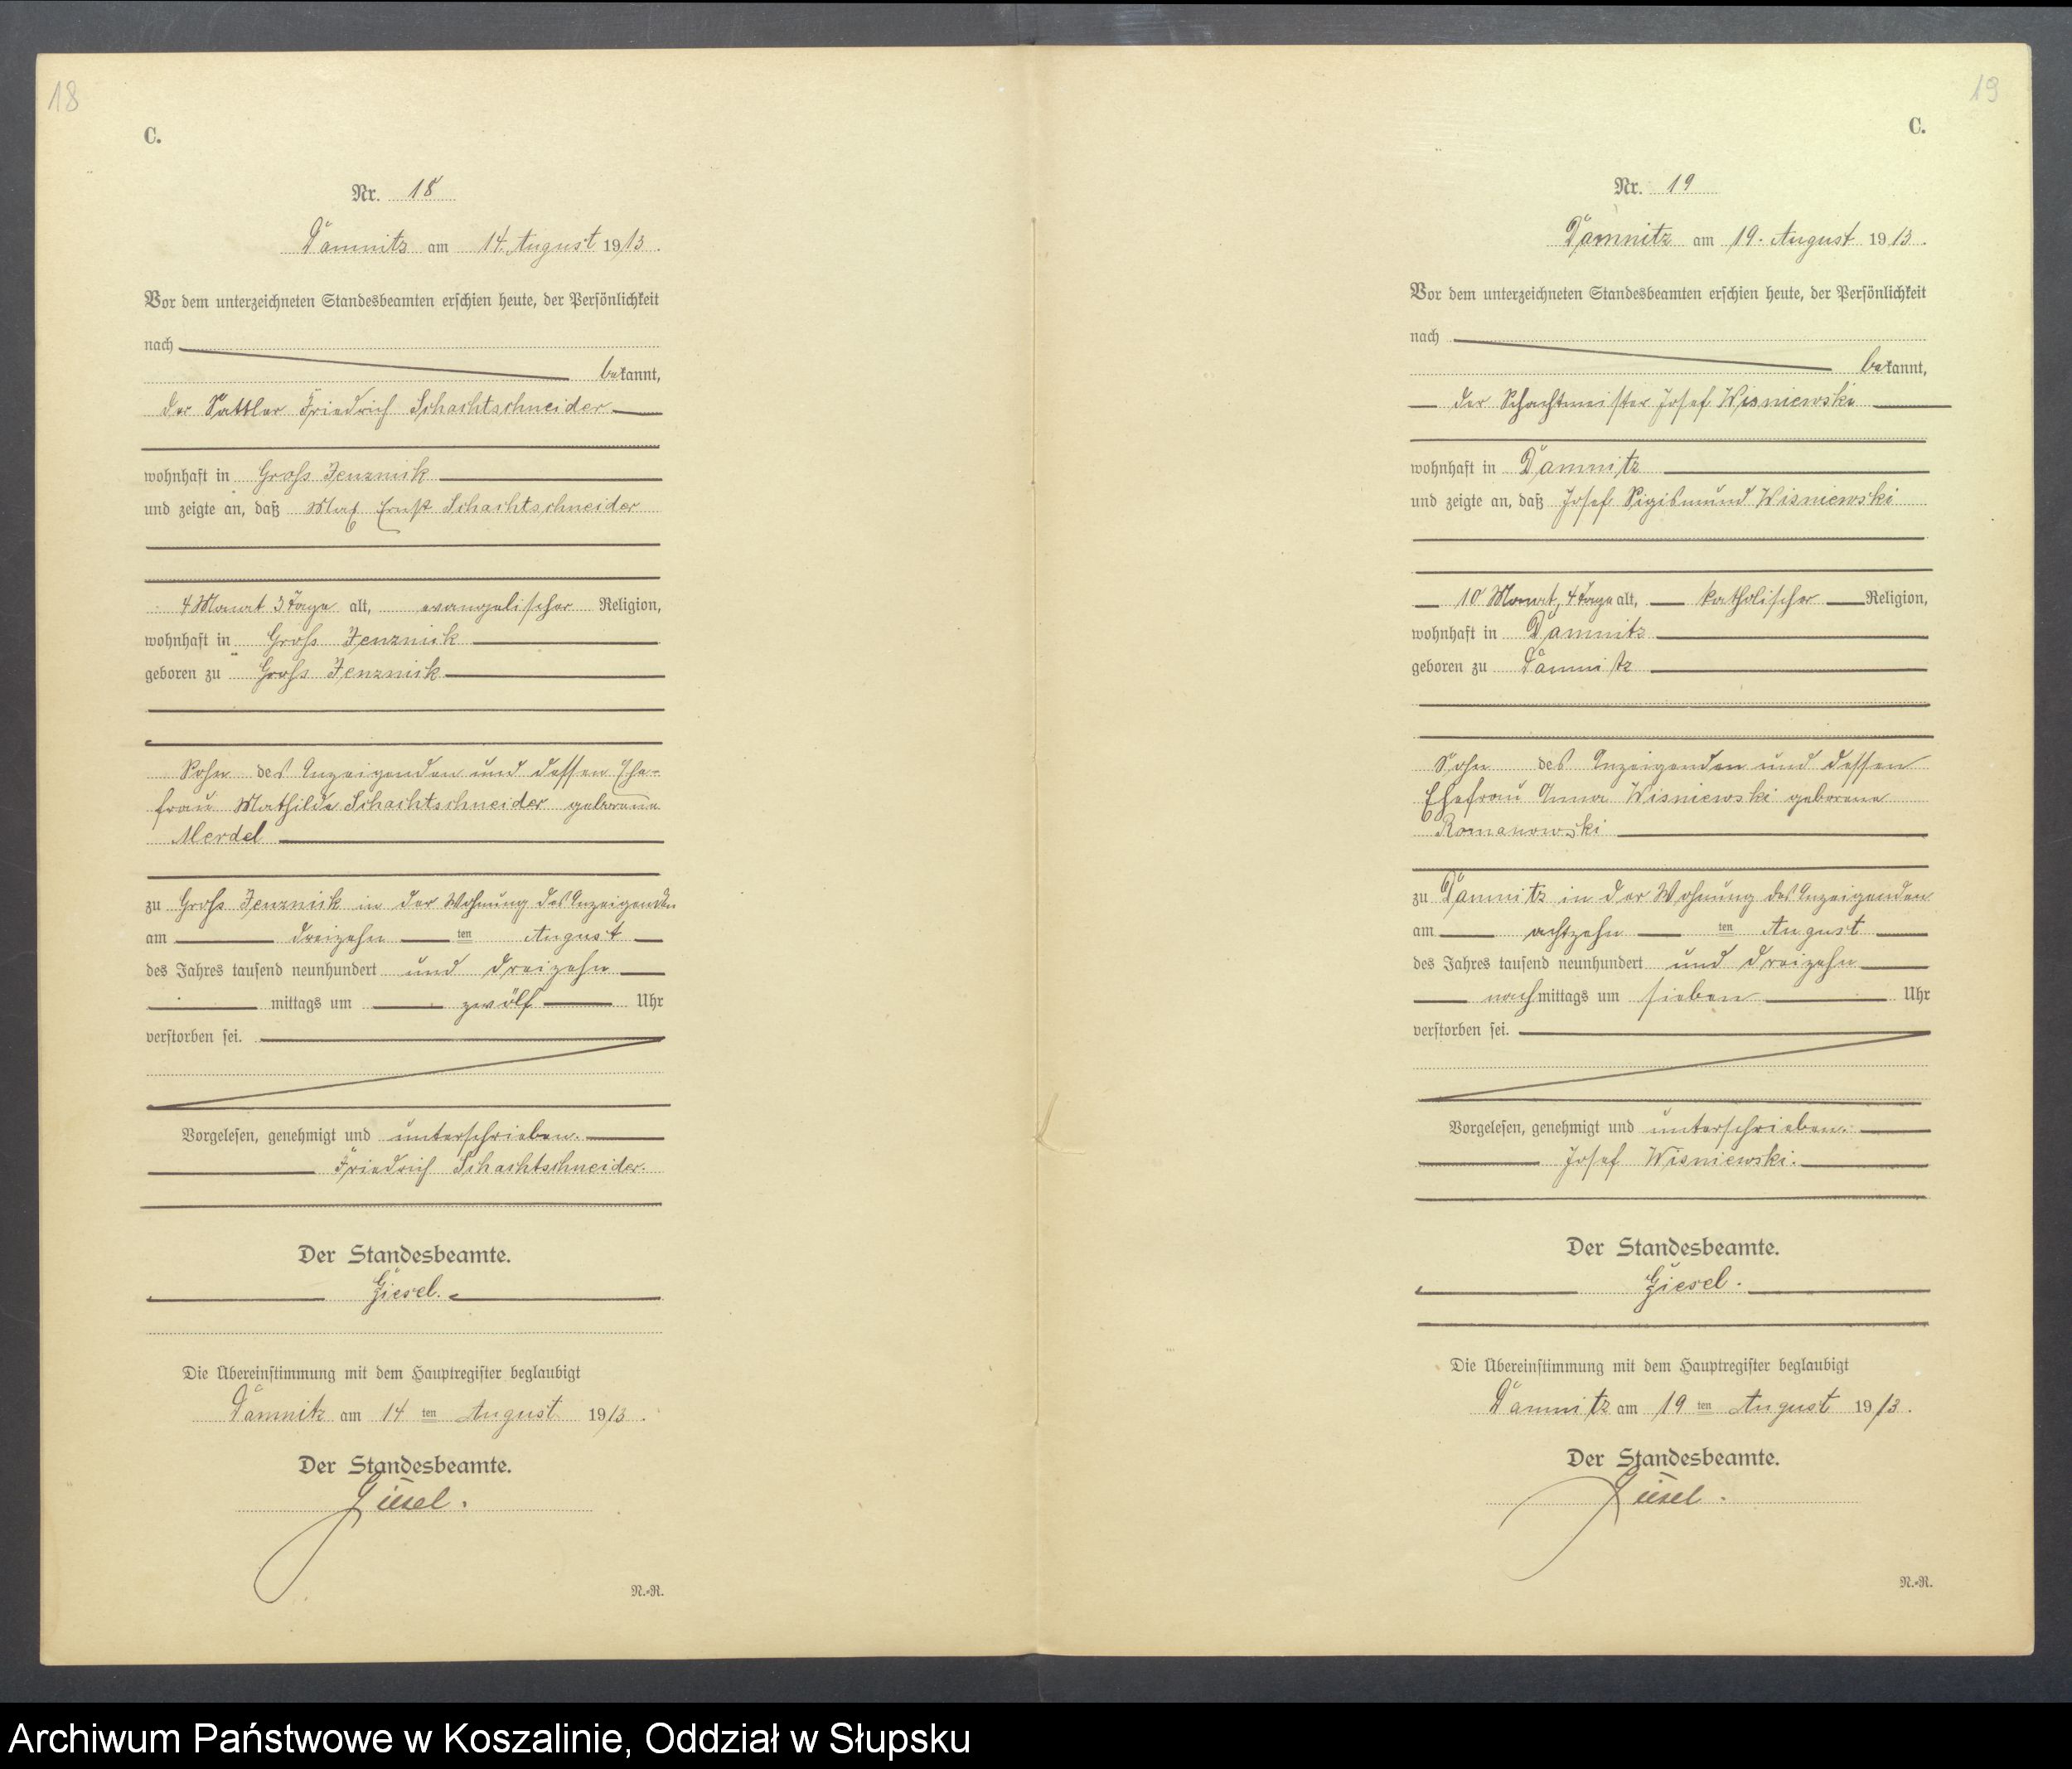 18
C.
Nr. 18
Damnitz am 14. August 1913.
Vor dem unterzeichneten Standesbeamten erschien heute, der Persönlichkeit
nach
bekannt,
der Sattler Friedrich Schachtschneider
wohnhaft in Gross Jenznick
und zeigte an, daß Max Ernst Schachtschneider
4 Monat 3 Tage alt, evangelischer Religion,
wohnhaft in Gross Jenznick
geboren zu Gross Jenznick
Sohn des Anzeigenden und dessen Ehe-
frau Mathilde Schachtschneider geborene
Merdel
zu Gross Jenznick in der Wohnung des Anzeigenden
am dreizehn ten August
des Jahres tausend neunhundert und dreizehn
mittags um zwölf Uhr
verstorben sei.
Vorgelesen, genehmigt und unterschrieben.
Friedrich Schachtschneider.
Der Standesbeamte.
Giesel.
Die Übereinstimmung mit dem Hauptregister beglaubigt
Damnitz am 14 ten August 1913.
Der Standesbeamte.
Giesel.
N.-R.
19
C.
Nr. 19
Damnitz am 19. August 1913.
Vor dem unterzeichneten Standesbeamten erschien heute, der Persönlichkeit
nach
bekannt,
der Schachtmeister Josef Wisniewski
wohnhaft in Damnitz
und zeigte an, daß Josef Sigismund Wisniewski
10 Monat, 4 Tage alt, katholischer Religion,
wohnhaft in Damnitz
geboren zu Damnitz
Sohn des Anzeigenden und dessen
Ehefrau Anna Wisniewski geborene
Romanowski
zu Damnitz in der Wohnung des Anzeigenden
am achtzehn ten August
des Jahres tausend neunhundert und dreizehn
nachmittags um sieben Uhr
verstorben sei.
Vorgelesen, genehmigt und unterschrieben.
Josef Wisniewski.
Der Standesbeamte.
Giesel.
Die Übereinstimmung mit dem Hauptregister beglaubigt
Damnitz am 19 ten August 1913.
Der Standesbeamte.
Giesel.
N.-R.
Archiwum Państwowe w Koszalinie, Oddział w Słupsku